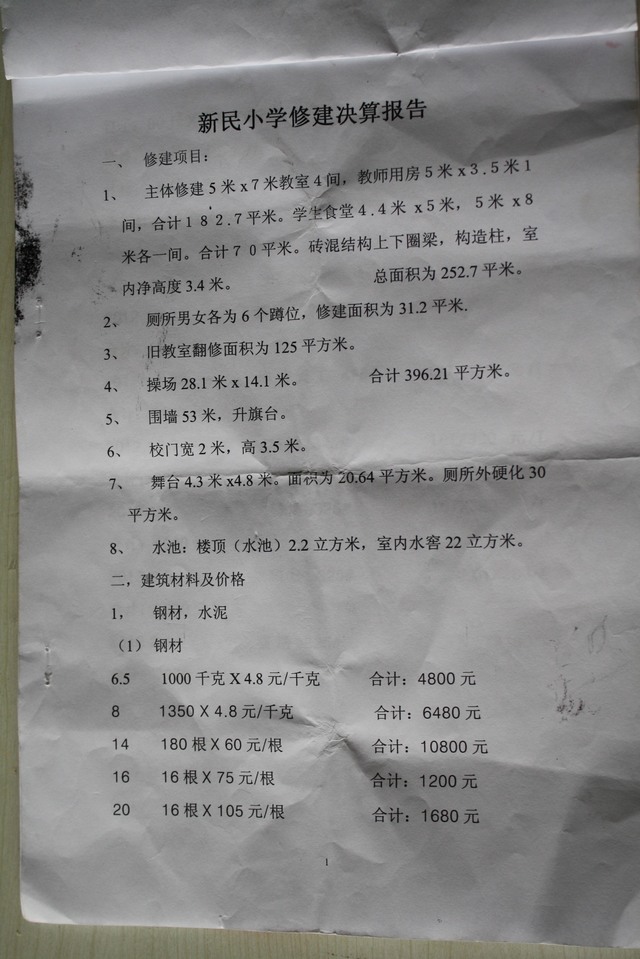 新民小学修建决算报告
一、 修建项目：
1、 主体修建5米x7米教室4间，教师用房5米x3.5米1
间，合计182.7平米。学生食堂4.4米x5米，5米x8
米各一间。合计70平米。砖混结构上下圈梁，构造柱，室
内净高度3.4米。 总面积为252.7平米。
2、 厕所男女各为6个蹲位，修建面积为31.2平米.
3、 旧教室翻修面积为125平方米。
4、 操场28.1米x14.1米。 合计396.21平方米。
5、 围墙53米，升旗台。
6、 校门宽2米，高3.5米。
7、 舞台4.3米x4.8米。面积为20.64平方米。厕所外硬化30
平方米。
8、 水池：楼顶（水池）2.2立方米，室内水窖22立方米。
二，建筑材料及价格
1， 钢材，水泥
（1）钢材
6.5 1000千克X4.8元/千克 合计：4800元
8 1350X4.8元/千克 合计：6480元
14 180根X60元/根 合计：10800元
16 16根X75元/根 合计：1200元
20 16根X105元/根 合计：1680元
1